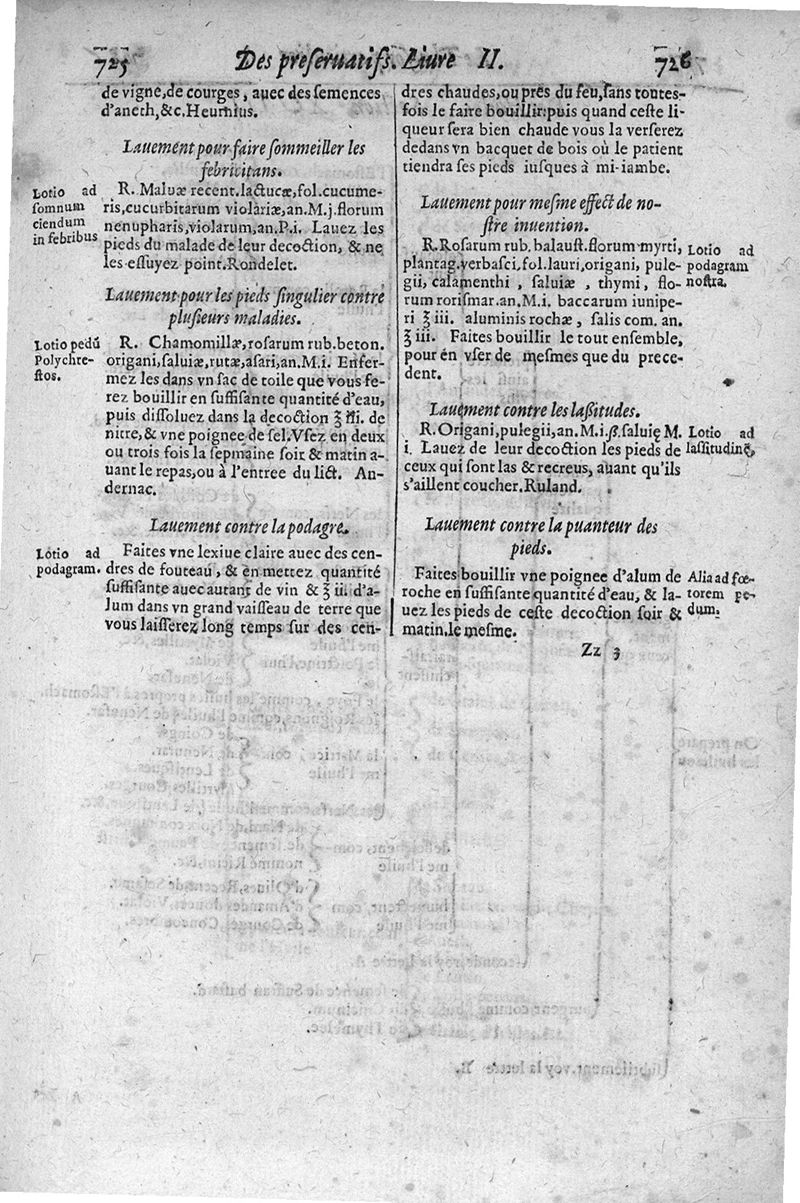 725 Des preseruatifs. Liure II. 726
de vigne, de courges, auec des semences
d'aneth, &c. Heurnius.
Lauement pour faire sommeiller les
febricitans.
Lotio ad
somnum
ciendum
in febribus
R. Maluæ recent. lactucæ, fol. cucume-
ris, cucurbitarum violariæ, an. M. j. florum
nenupharis, violarum, an. P. i. Lauez les
pieds du malade de leur decoction, & ne
les essuyez point. Rondelet.
Lauement pour les pieds singulier contre
plusieurs maladies.
Lotio pedũ
Polychre-
stos.
R. Chamomillæ, rosarum rub. beton.
origani, saluiæ, rutæ, asari, an. M. i. Enfer-
mez les dans vn sac de toile que vous fe-
rez bouillir en suffisante quantité d'eau,
puis dissoluez dans la decoction ʒ iii. de
nitre, & vne poignee de sel. Vsez en deux
ou trois fois la sepmaine soir & matin a-
uant le repas, ou à l'entree du lict. An-
dernac.
Lauement contre la podagre.
Lotio ad
podagram.
Faites vne lexiue claire auec des cen-
dres de fouteau, & en mettez quantité
suffisante auec autant de vin & ʒ ii. d'a-
lum dans vn grand vaisseau de terre que
vous laisserez long temps sur des cen-
dres chaudes, ou pres du feu, sans toutes-
fois le faire bouillir: puis quand ceste li-
queur sera bien chaude vous la verserez
dedans vn bacquet de bois où le patient
tiendra ses pieds iusques à mi-iambe.
Lauement pour mesme effect de no-
stre inuention.
R. Rosarum rub. balaust. florum myrti,
plantag. verbasci, fol. lauri, origani, pule-
gii, calamenthi, saluiæ, thymi, flo-
rum rorismar. an. M. i. baccarum iunipe-
ri ʒ iii. aluminis rochæ, salis com. an.
ʒ iii. Faites bouillir le tout ensemble,
pour en vser de mesmes que du prece-
dent.
Lotio ad
podagram
nostra.
Lauement contre les lassitudes.
R. Origani, pulegii, an. M. i. ß. saluię M.
i. Lauez de leur decoction les pieds de
ceux qui sont las & recreus, auant qu'ils
s'aillent coucher. Ruland.
Lotio ad
lassitudinē,
Lauement contre la puanteur des
pieds.
Faites bouillir vne poignee d'alum de
roche en suffisante quantité d'eau, & la-
uez les pieds de ceste decoction soir &
matin. le mesme.
Alia ad fœ-
torem pe-
dum.
Zz 3